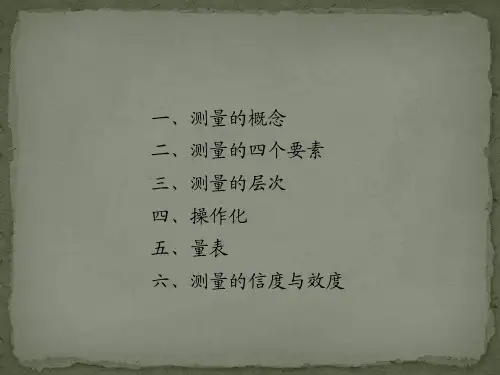 一、测量的概念
二、测量的四个要素
三、测量的层次
四、操作化
五、量表
六、测量的信度与效度